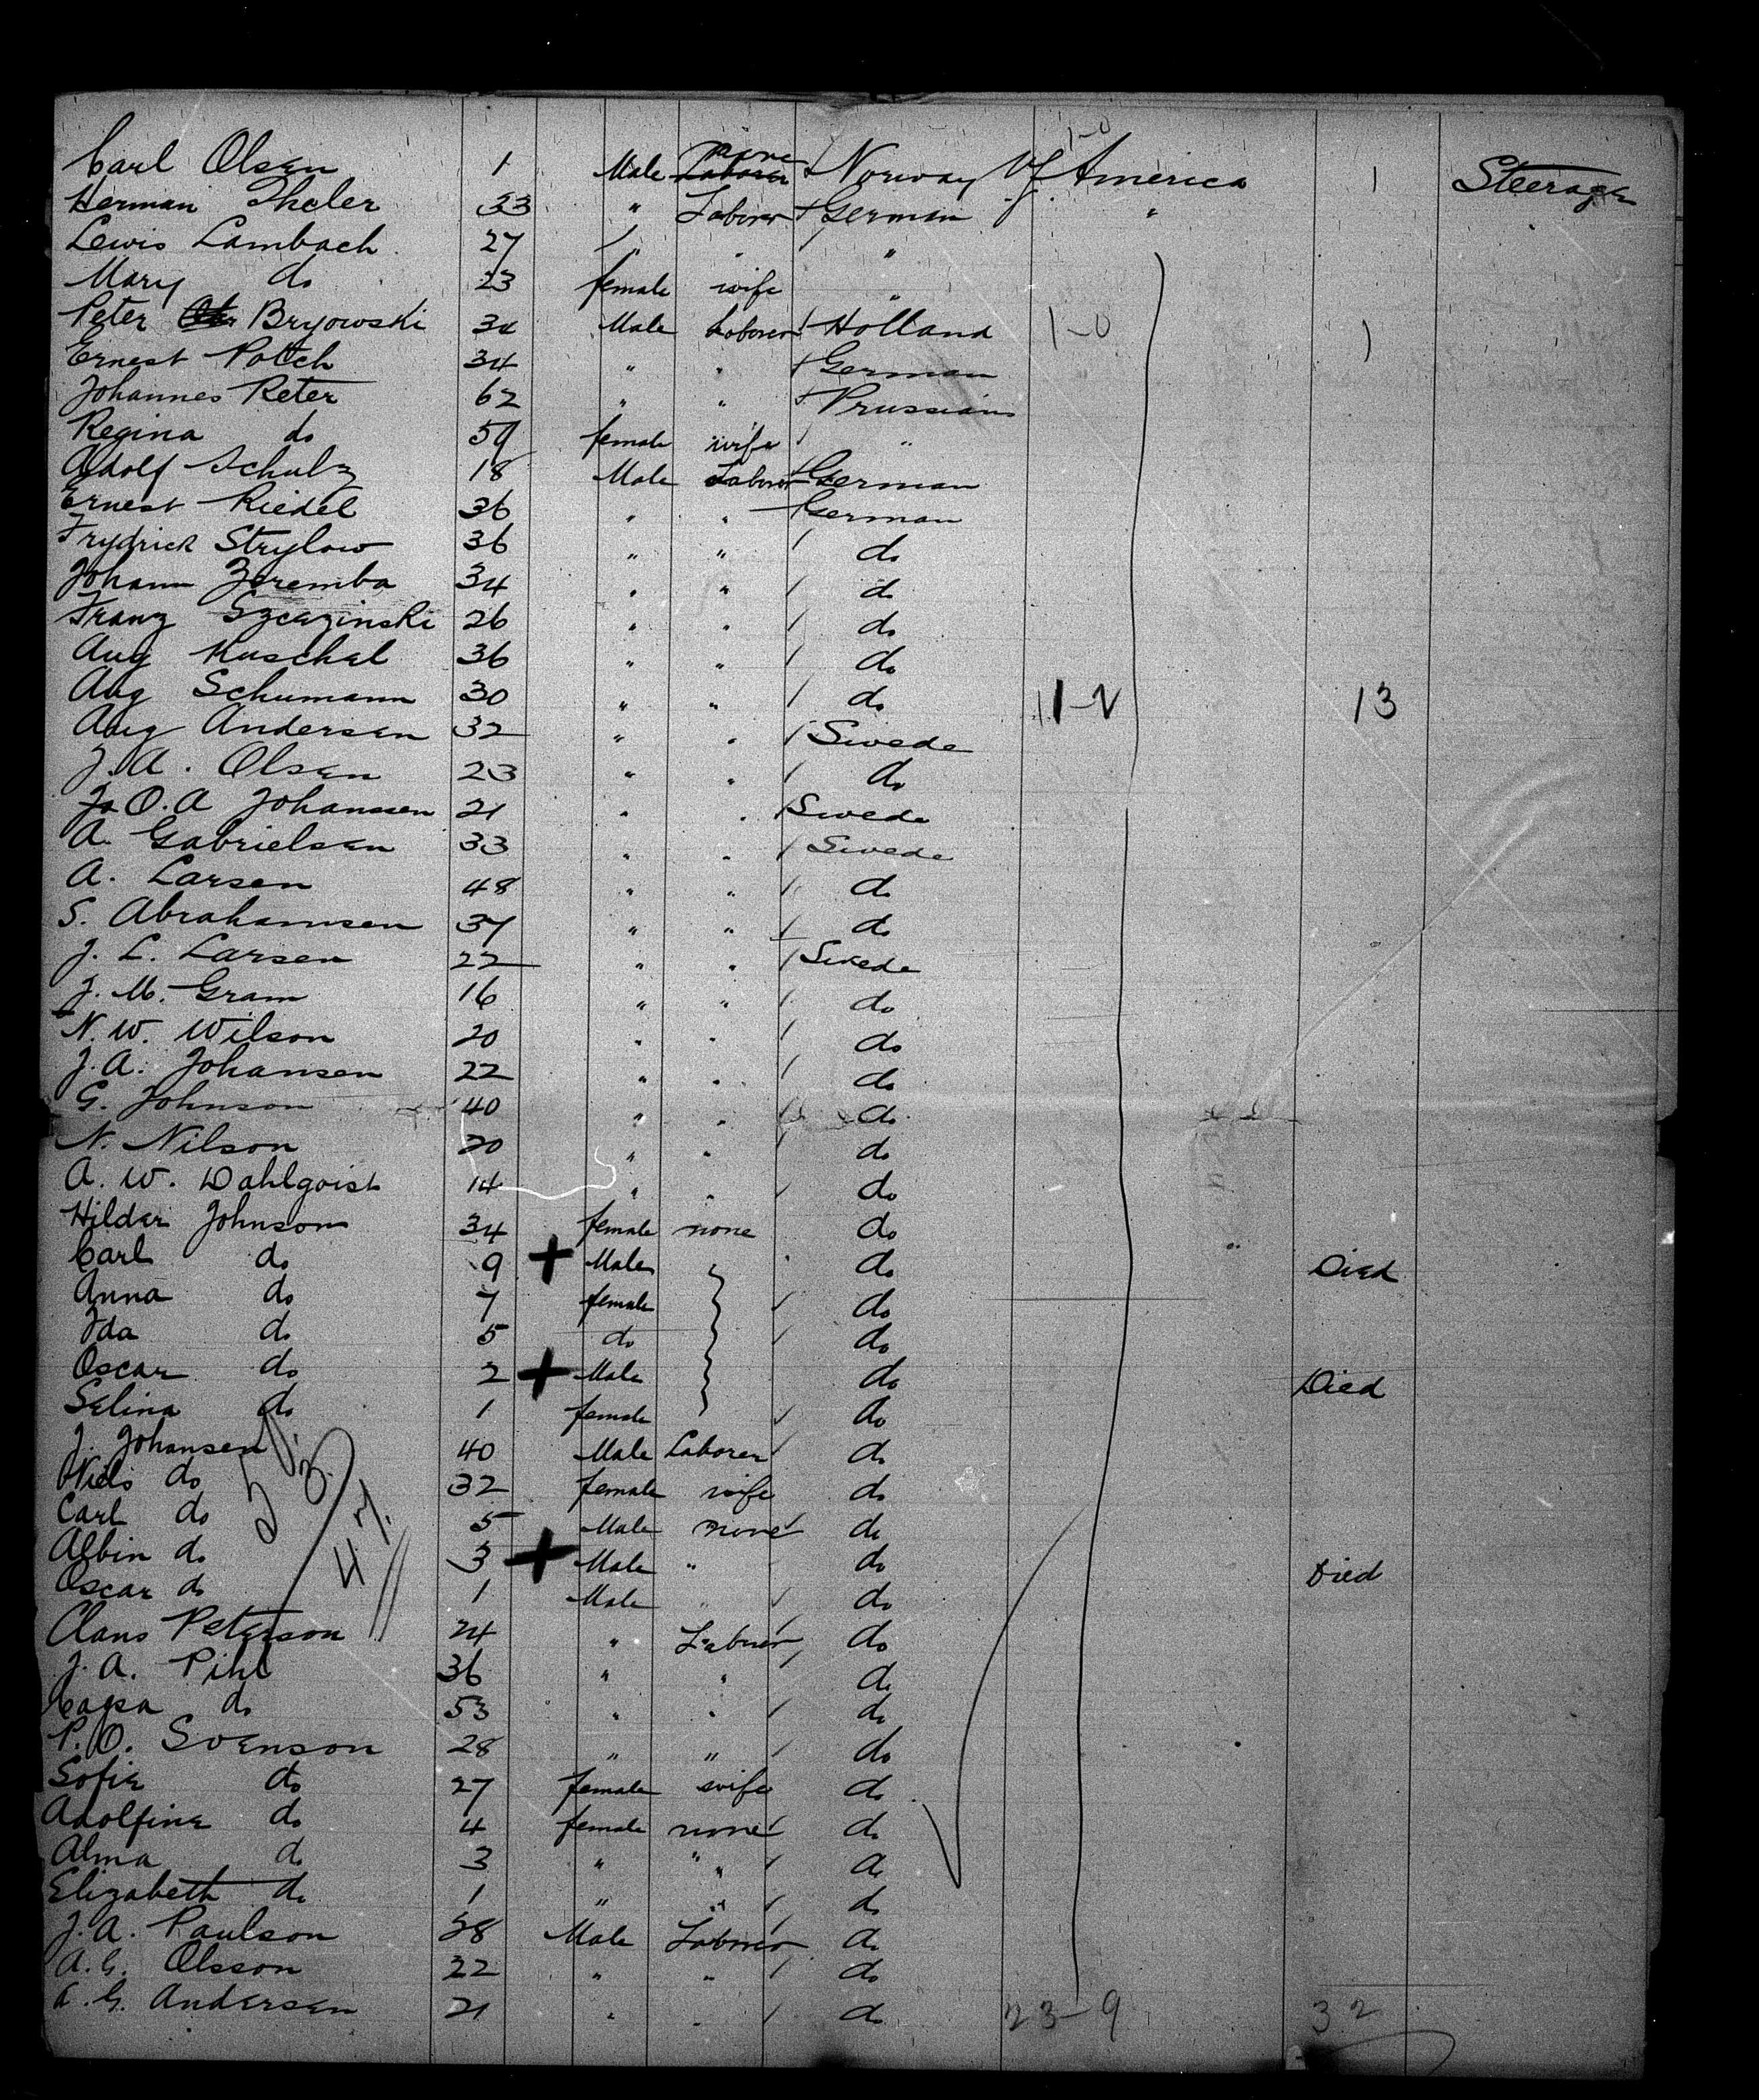 1-0
Carl Olsen 1 Male none Laborer Norway U.S. America 1 Steerage
Herman Theler 33 " Laborer German "
Lewis Lambach 27 " " "
Mary do 23 female wife "
Peter Bryowski 34 Male Laborer Holland 1-0 1
Ernest Potch 34 " " German
Johannes Reter 62 " " Prussian
Regina do 59 female wife "
Adolf Schulz 18 Male Laborer German
Ernest Riedel 36 " " German
Frydrick Strylow 36 " " do
Johann Zaremba 34 " " do
Franz Szcazinski 26 " " do
Aug Kuschel 36 " " do
Aug Schumann 30 " " do 11-2 13
Aug Andersen 32 " " Swede
J. A. Olsen 23 " " do
Jo O. A Johanssen 21 " " Swede
A. Gabrielsen 33 " " Swede
A. Larsen 48 " " do
S. Abrahamsen 37 " " do
J. L. Larsen 22 " " Swede
J. M. Gram 16 " " do
N. W. Wilson 20 " " do
J. A. Johansen 22 " " do
G. Johnson 40 " " do
N. Nilson 20 " " do
A. W. Dahlqvist 14 " " do
Hilder Johnson 34 female none do
Carl do 9 + Male do Died
Anna do 7 female do
Ida do 5 do do
Oscar do 2 + Male do Died
Selina do 1 female do
J. Johansen 40 Male Laborer do
Niels do 32 female wife do
Carl do 5 Male none do
Albin do 3 + Male " do Died
Oscar do 1 Male " do
Claus Peterson 24 " Laborer do
J. A. Pihl 36 " " do
do 53 " " do
P. O. Svenson 28 " " do
Sofie do 27 female wife do
Adolfine do 4 female none do
Alma do 3 " " do
Elizabeth do 1 " " do
J. A. Paulson 38 Male Laborer do
A. G. Olsson 22 " " do
A. G. Andersen 21 " " do 23-9 32